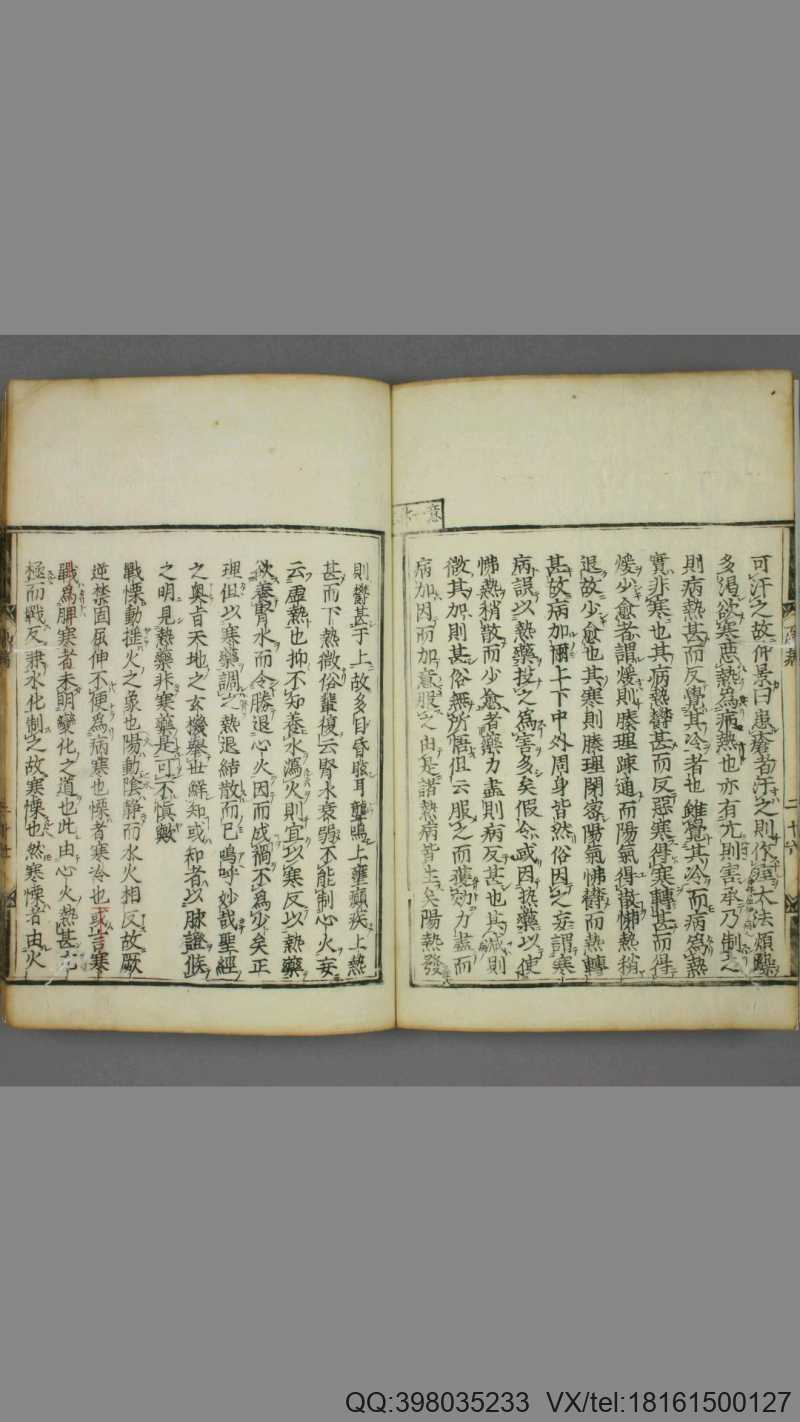 可汗之故仲景曰患瘡者汗之則作痙大法煩躁
多渴欲寒惡熱為病熱也亦有亢則害承乃制之
則病熱甚而反覺其冷者也雖覺其冷而病為熱
實非寒也其病熱鬱甚而反惡寒得寒轉甚而得
煖少愈者謂煖則腠理疎通而陽氣得散怫熱稍
退故少愈也其寒則腠理閉密陽氣怫鬱而熱轉
甚故病加爾上下中外周身皆然俗因之妄謂寒
病誤以熱藥投之為害多矣假令或因熱藥以使
怫熱稍散而少愈者藥力盡則病反甚也其減則
微其加則甚俗無所悟但云服之而獲効力盡而
病加因而加意服之由是諸熱病皆生矣陽熱發
則鬱甚于上故多目昏眩耳聾鳴上壅癲疾上熱
甚而下熱微俗輩復云腎水衰弱不能制心火妄
云虛熱也抑不知養水瀉火則宜以寒反以熱藥
欲養腎水而令勝退心火因而成禍不為少矣正
理但以寒藥調之熱退結散而已嗚呼妙哉聖經
之奧旨天地之玄機舉世鮮知或知者以脉證候
之明見熱藥非寒藥是可不慎歟
戰慄動搖火之象也陽動陰靜而水火相反故厥
逆禁固屈伸不便為病寒也慄者寒冷也或言寒
戰為脾寒者未明變化之道也此由心火熱甚亢
極而戰反兼水化制之故寒慄也然寒慄者由火
QQ:398035233 VX/tel:18161500127